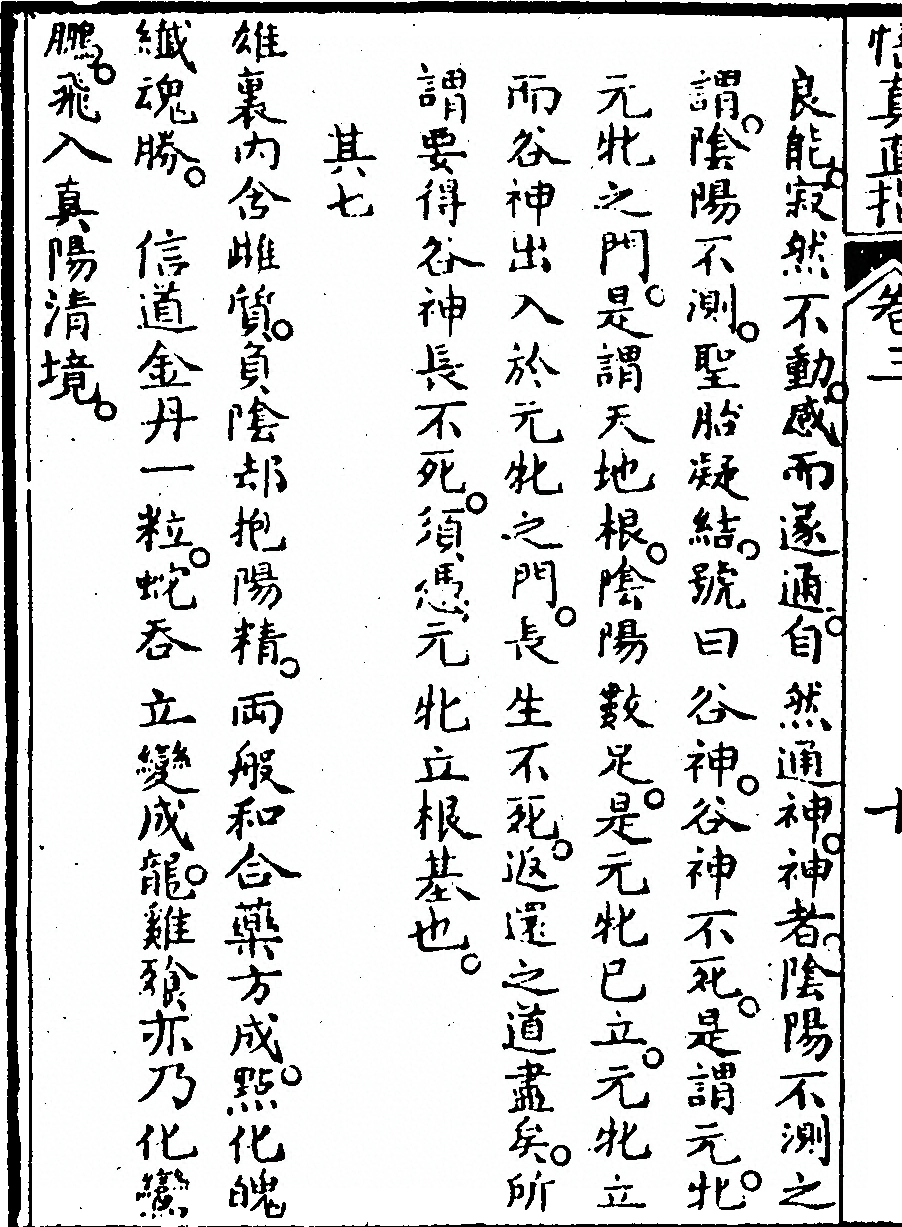 悟真直指 卷三 十
良能。寂然不動。感而遂通。自然通神。神者。陰陽不測之
謂。陰陽不測。聖胎凝結。號曰谷神。谷神不死。是謂元牝。
元牝之門。是謂天地根。陰陽數足。是元牝已立。元牝立
而谷神出入於元牝之門。長生不死。返還之道盡矣。所
謂要得谷神長不死。須憑元牝立根基也。
其七
雄裏內含雌質。負陰却抱陽精。兩般和合藥方成。點化魄
纖魂勝。 信道金丹一粒。蛇吞立變成龍。雞飱亦乃化鸞
鵬。飛入真陽清境。